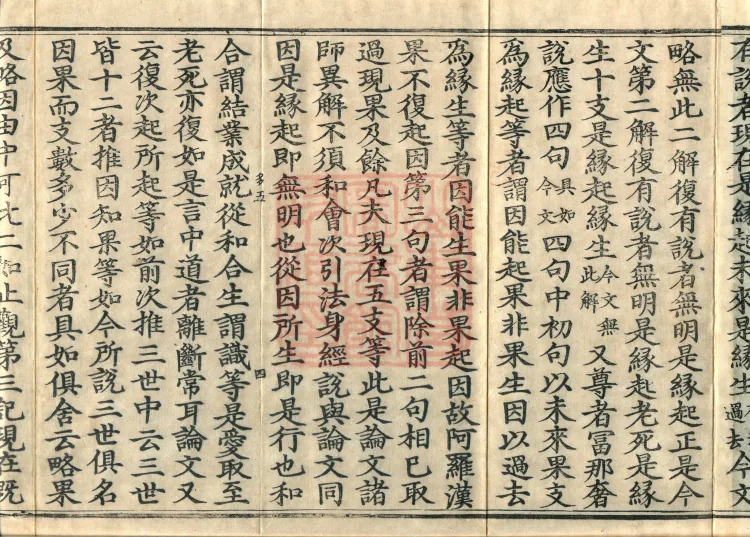 有說者現在是緣起未來是緣生過去今文
略無此二解復有說者無明是緣起正是今
文第二解復有說者無明是緣起老死是緣
生十支是緣起緣生今文無此解又尊者富那奢
說應作四句具如今文四句中初句以未來果支
為緣起等者謂因能起果非果生因以過去
為緣生等者因能生果非果起因故阿羅漢
果不復起因第三句者謂除前二句相已取
過現果及餘凡夫現在五支等此是論文諸
師異解不須和會次引法身經說與論文同
因是緣起即無明也從因所生即是行也和
合謂結業成就從和合生謂識等是愛取至
老死亦復如是言中道者離斷常耳論文又
云復次起所起等如前次推三世中云三世
皆十二者推因知果等如今所說三世俱名
因果而支數多少不同者具如俱舍云略果
及略因由中可比二如止觀第三記現在既